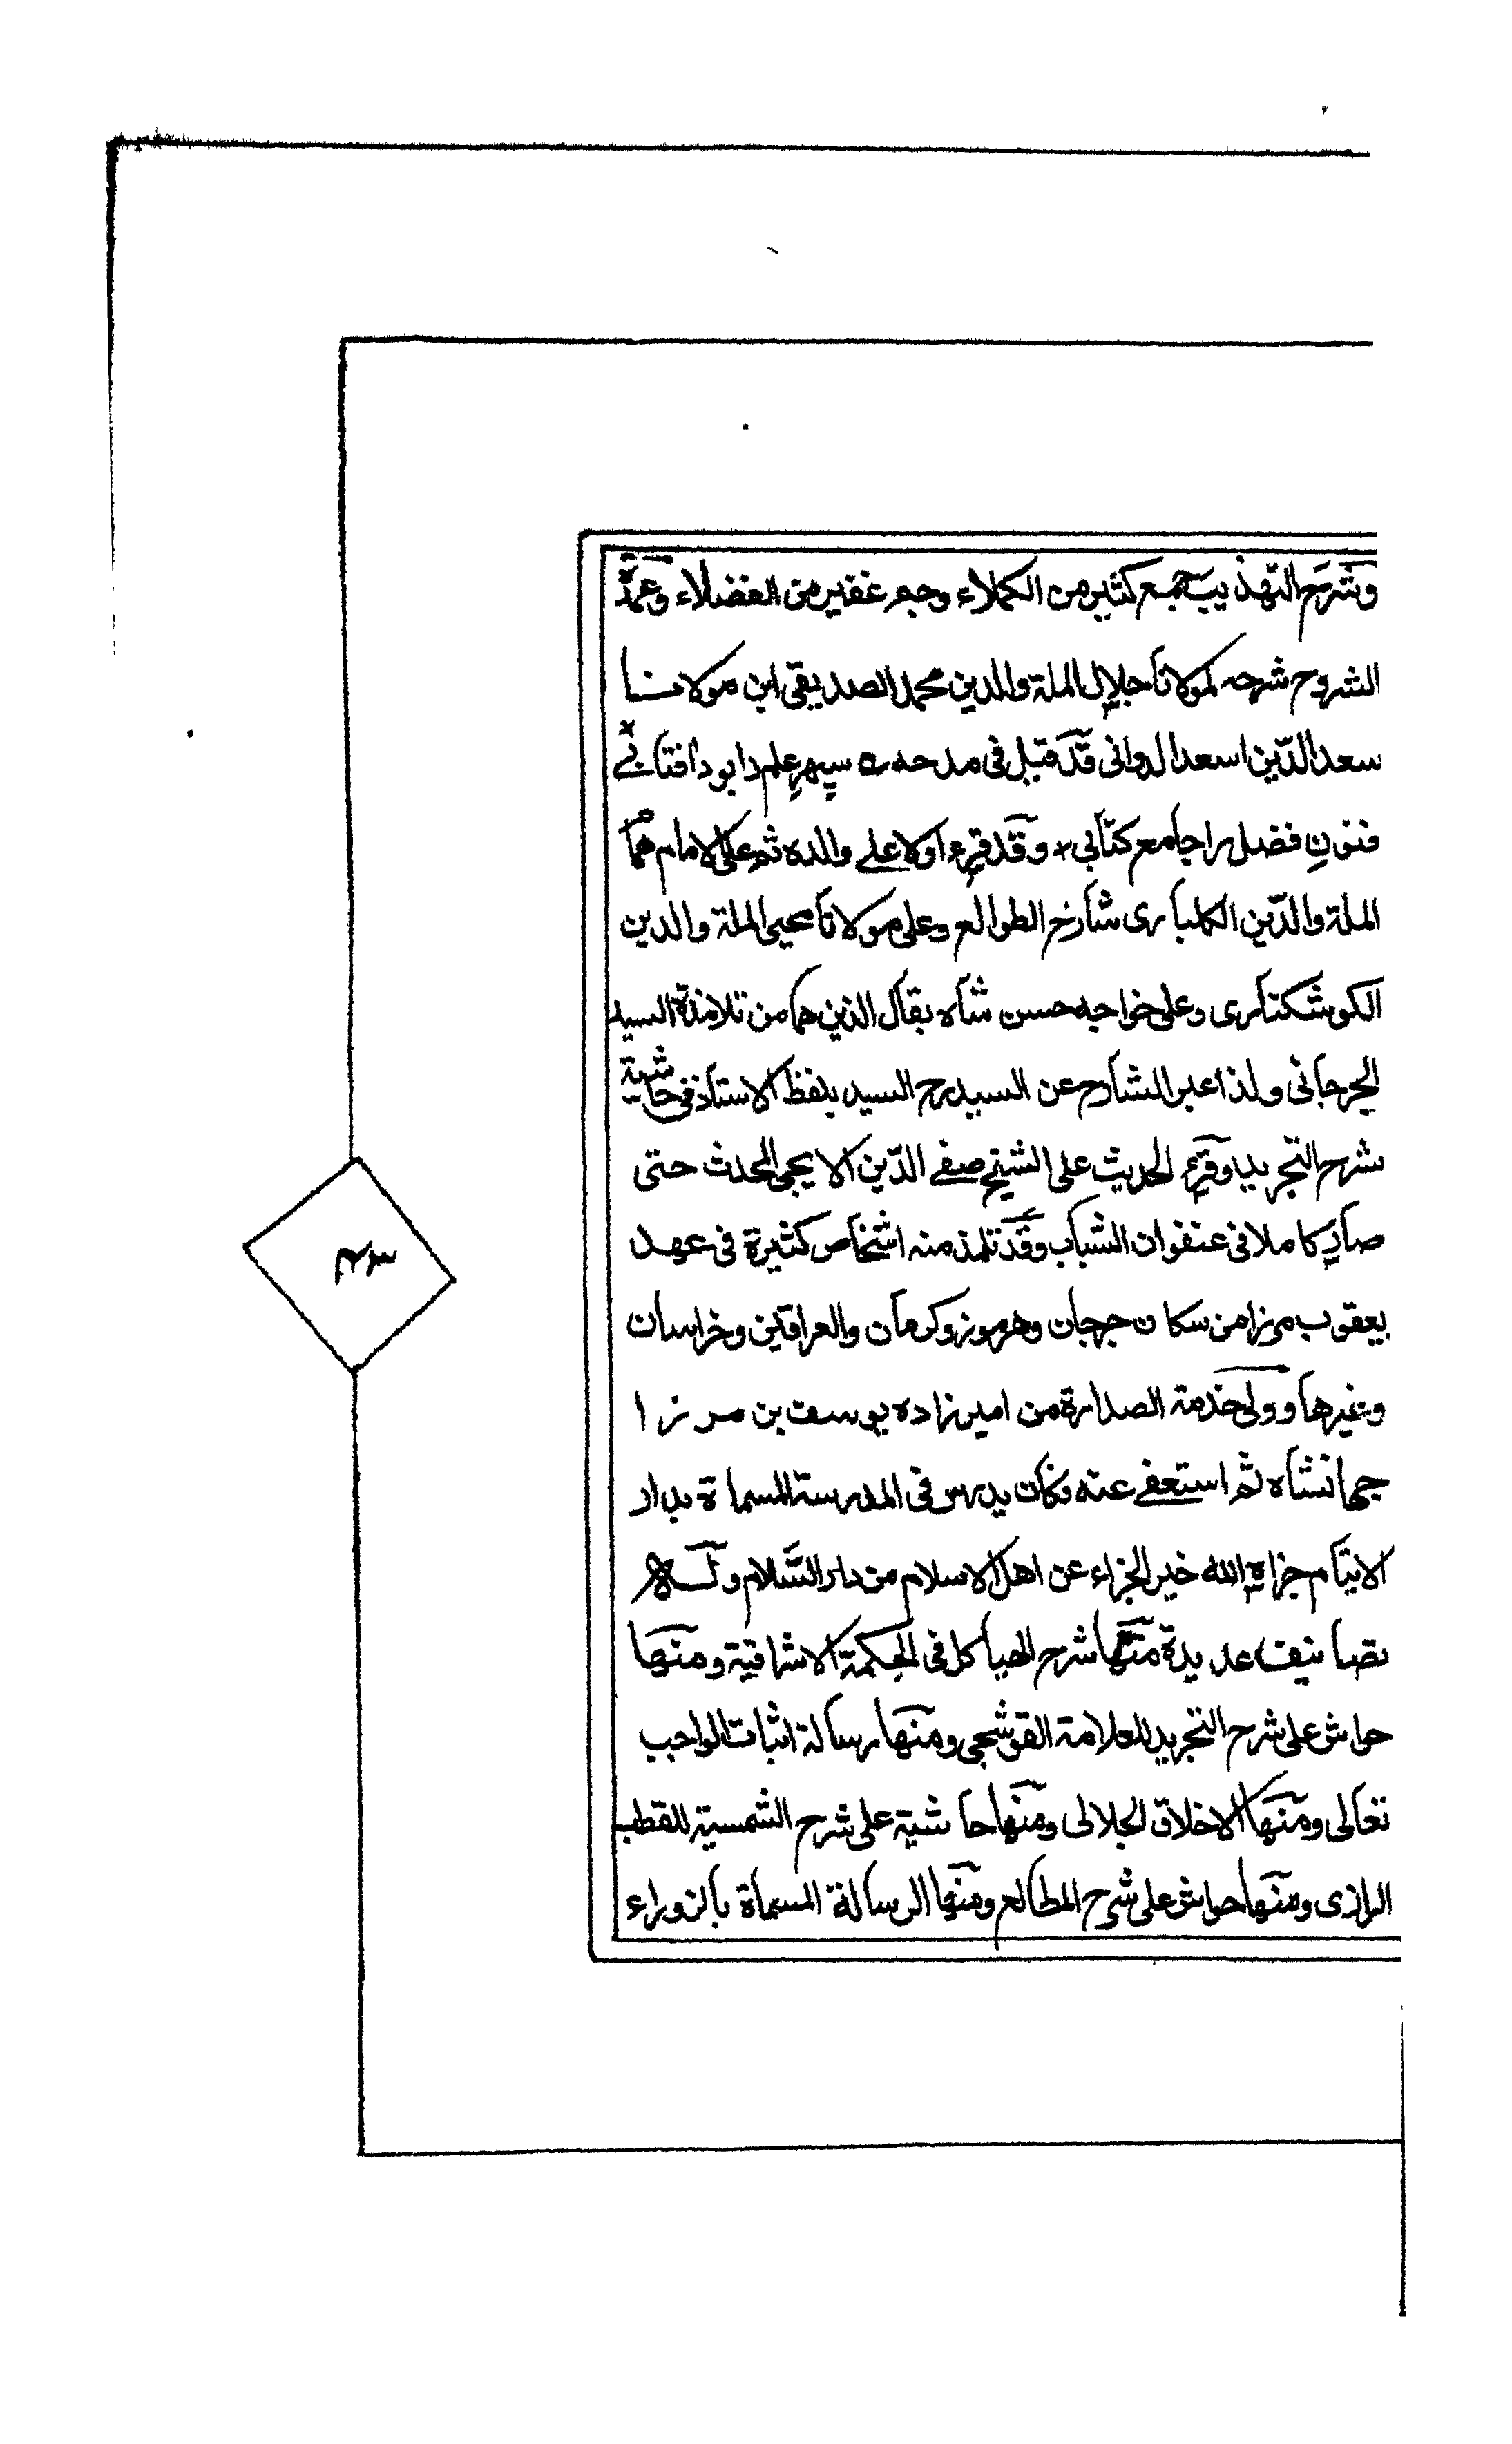 وشرح التهذيب جمع كثير من الكملاء وجم غفير من الفضلاء وعمدة
الشروح شرحه لمولانا جلال الملة والدين محمد الصديقي ابن مولانا
سعد الدّين اسعد الدواني قد قيل في مدحه ه سپهرِ علم دابود افتابے
فنونِ فضل را جامع كتابي وقد قرء اولا علے والده ثم على الامام همام
الملة والدّين الكلباري شارح الطوالع وعلى مولانا محيي الملة والدين
الكوشكناري وعلى خواجه حسن شاه بقال الذين هما من تلامذة السيد
الجرجاني ولذا عبر الشارح عن السيد رح السيد بلفظ الاستاذ في حاشية
شرح التجريد وقرء الحديث على الشيخ صفے الدّين الايجي المحدث حتى
صار كاملا في عنفوان الشباب وقد تلمذ منه اشخاص كثيرة في عهد
يعقوب ميرزا من سكان جرجان وهرموز وكرمان والعراقين وخراسان
وغيرها وولى خدمة الصدارة من امير زاده يوسف بن مرزا
جهانشاه ثم استعفے عنه فكان يدرس في المدرسة المسماة بدار
الايتام جزاه الله خير الجزاء عن اهل الاسلام من دار السّلام وله
تصانيف عديدة منها شرح الهياكل في الحكمة الاشراقية ومنها
حواش على شرح التجريد للعلامة القوشجي ومنها رسالة اثبات الواجب
تعالى ومنها الاخلاق الجلالي ومنها حاشية على شرح الشمسية للقطب
الرازي ومنها حواش على شرح المطالع ومنها الرسالة المسماة بالزوراء
۴۳